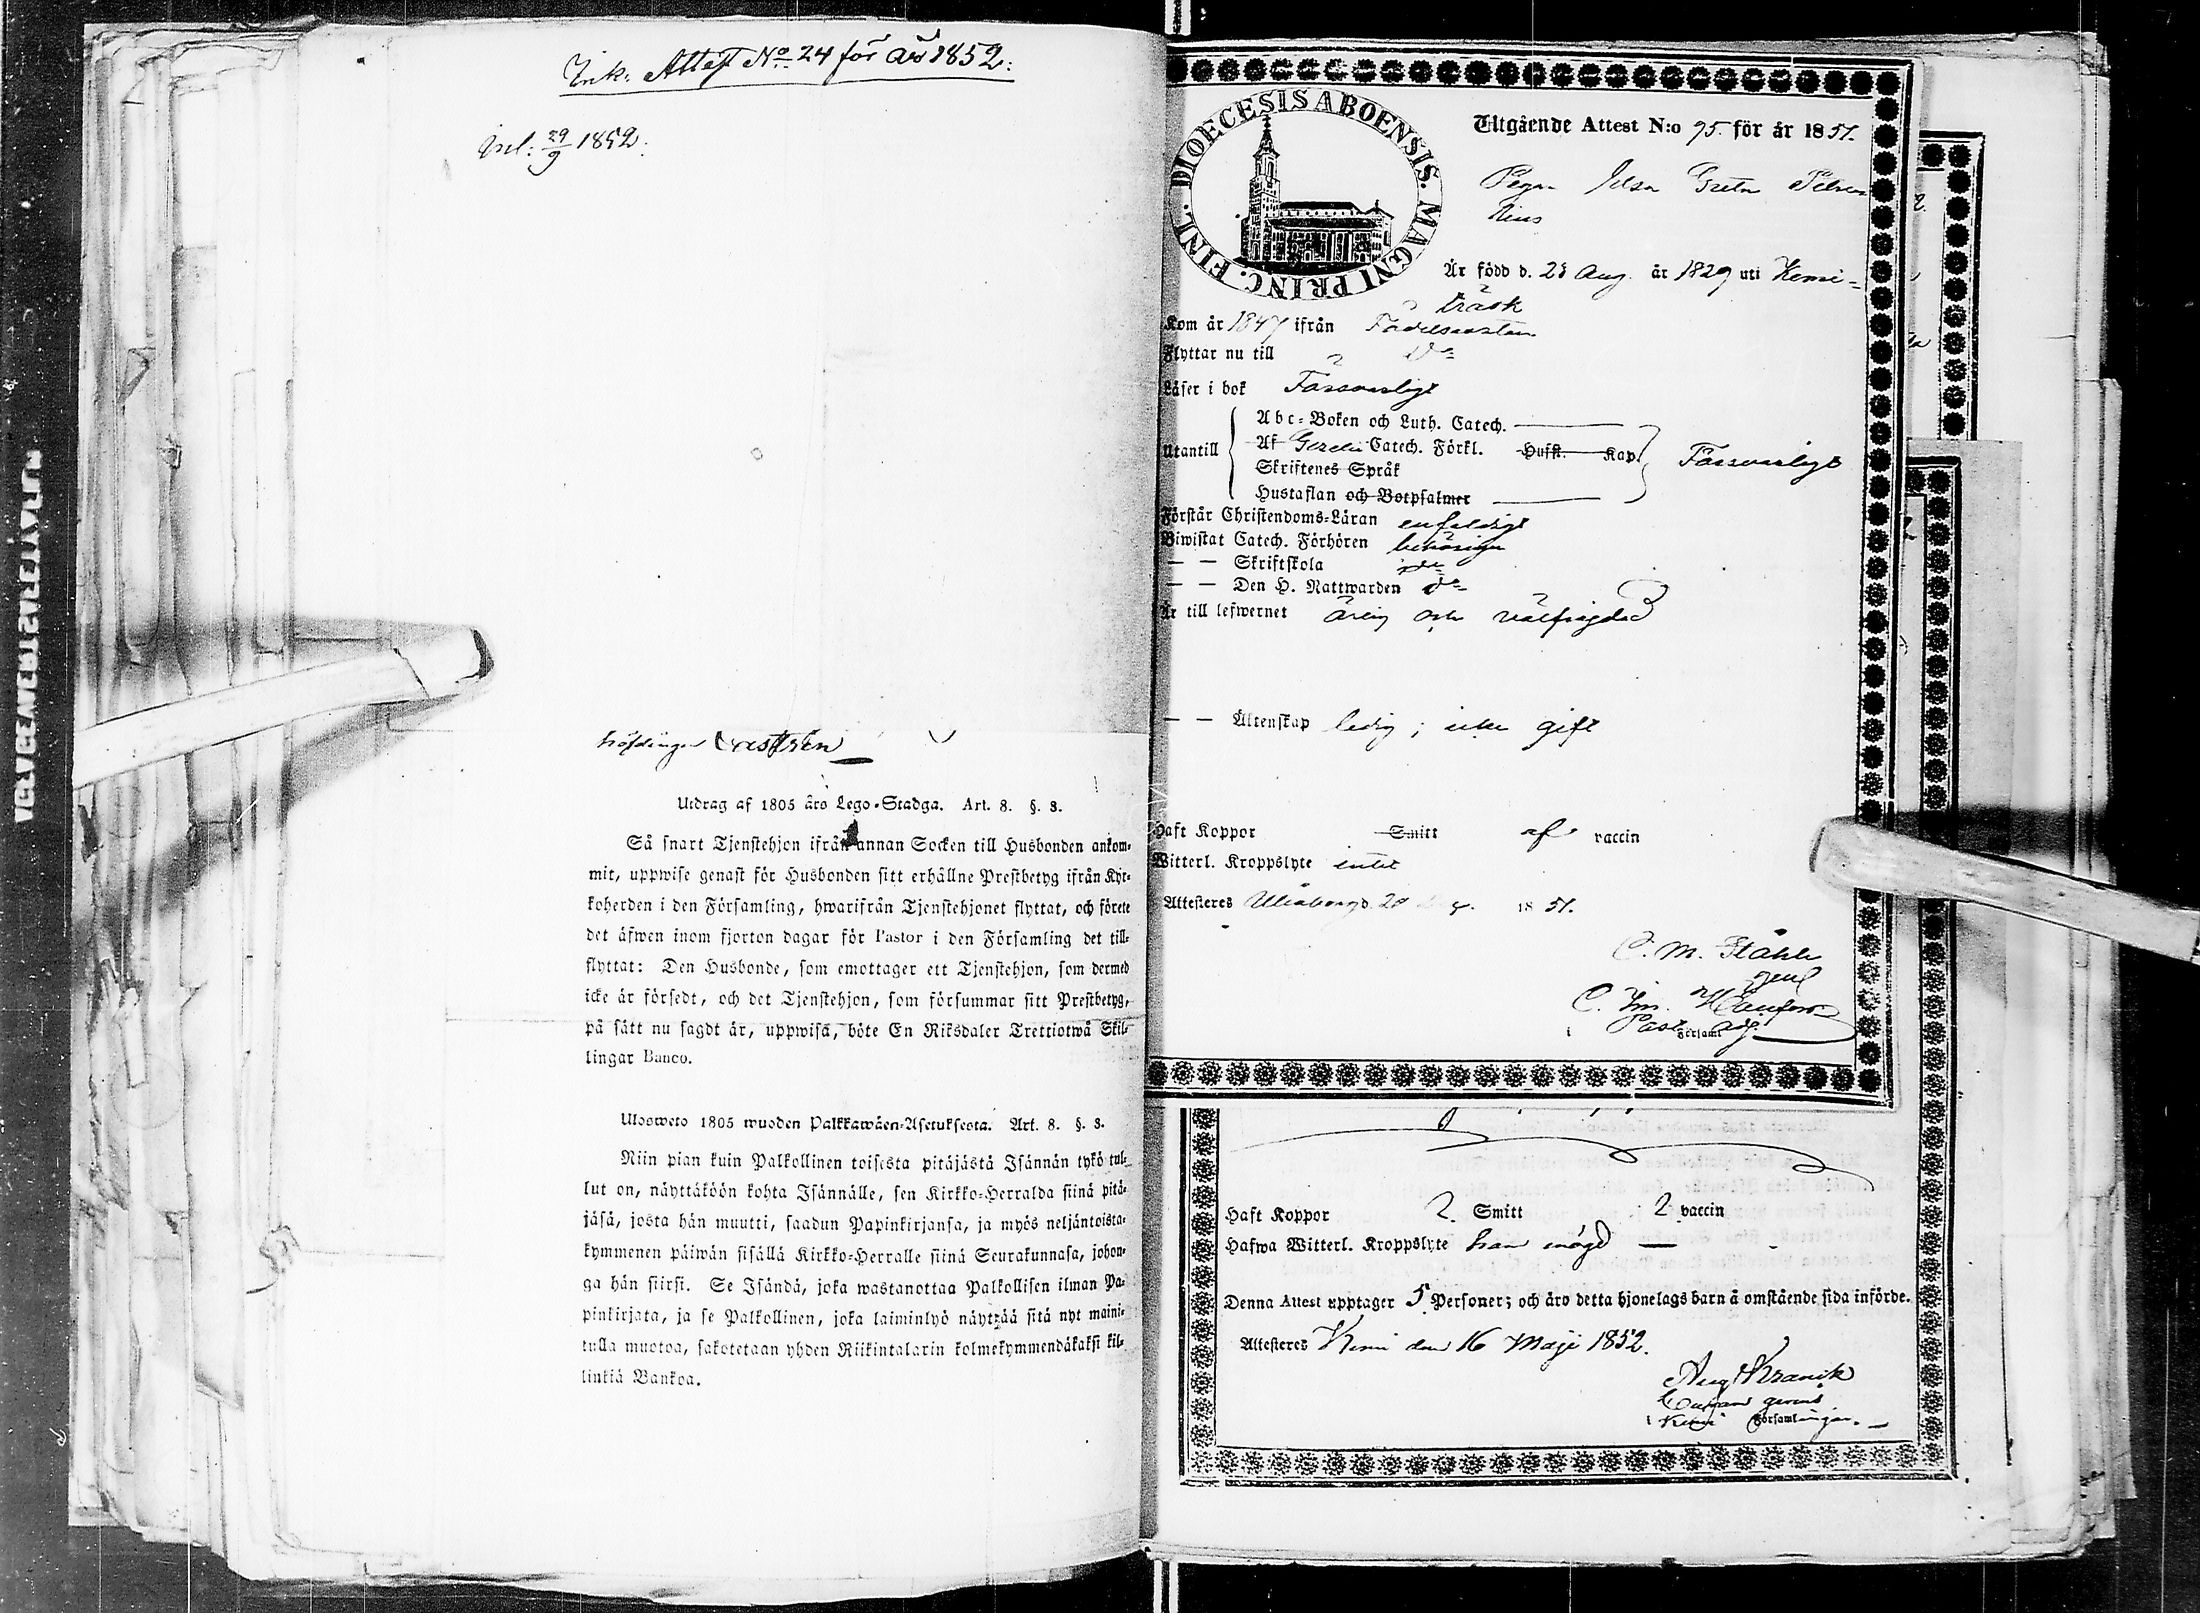 Ink: Attest No 24 för år 1852.
Inl: 29/9 1852.
Utdrag af 1805 års Lego-Stadga. Art. 8. §. 3.
Så snart Tjenstehjon ifrån annan Socken till Husbonden ankom-
mit, uppwise genast för Husbonden sitt erhållne Prestbetyg ifrån Kyr-
koherden i den Församling, hwarifrån Tjenstehjonet flyttat, och förete
det äfwen inom fjorton dagar för Pastor i den Församling det till-
flyttat: Den Husbonde, som emottager ett Tjenstehjon, som dermed
icke är försedt, och det Tjenstehjon, som försummar sitt Prestbetyg,
på sätt nu sagdt är, uppwisa, böte En Riksdaler Trettiotwå Skil-
lingar Banco.
Ulosweto 1805 wuoden Palkkawäen-Asetuksesta. Art. 8. §. 3.
Niin pian kuin Palkollinen toisesta pitäjästä Isännän tykö tul-
lut on, näyttäköön kohta Isännälle, sen Kirkko-Herralda siinä pitä-
jäsä, josta hän muutti, saadun Papinkirjansa, ja myös neljäntoista-
kymmenen päiwän sisällä Kirkko-Herralle siinä Seurakunnasa, johon-
ga hän siirsi. Se Isändä, joka wastanottaa Palkollisen ilman Pa-
pinkirjata, ja se Palkollinen, joka laiminlyö näyttää sitä nyt maini-
tulla muotoa, sakotetaan yhden Riikintalarin kolmekymmendäkaksi kil-
linkiä Bankoa.
DIOECESIS ABOENSIS. MAGNI PRINC. FINL.
Utgående Attest N:o 95. för år 1851.
Pigan Elsa Greta
Är född d. 28 Aug. år 1829 uti Kemi-
träsk
Kom år 1847 ifrån Födelseorten
Flyttar nu till Do
Läser i bok Försvarligt
Abc-Boken och Luth. Catech.
Utantill Af Catech. Förkl. Hufst. Kap. Försvarligt
Skriftenes Språk
Hustaflan och Botpsalmer
Förstår Christendoms-Läran enfaldigt
Biwistat Catech. Förhören behörigen
— — Skriftskola do
— — Den H. Nattwarden do
Är till lefwernet ärlig och välfrägdad
— — Äktenskap ledig; icke gift
Haft Koppor Smitt af vaccin
Witterl. Kroppslyte intet
Attesteres Uleåborg d. 20 1851.
C. M. Ståhle
C. Im.
i Past. adj. Församl
Haft Koppor 2. Smitt 2 vaccin
Hafwa Witterl. Kroppslyte
Denna Attest upptager 5 Personer; och äro detta hjonelags barn å omstående sida införde.
Attesteres Kemi den 16 Maji 1852.
Aug Kranck
i Kemi Församlingen.